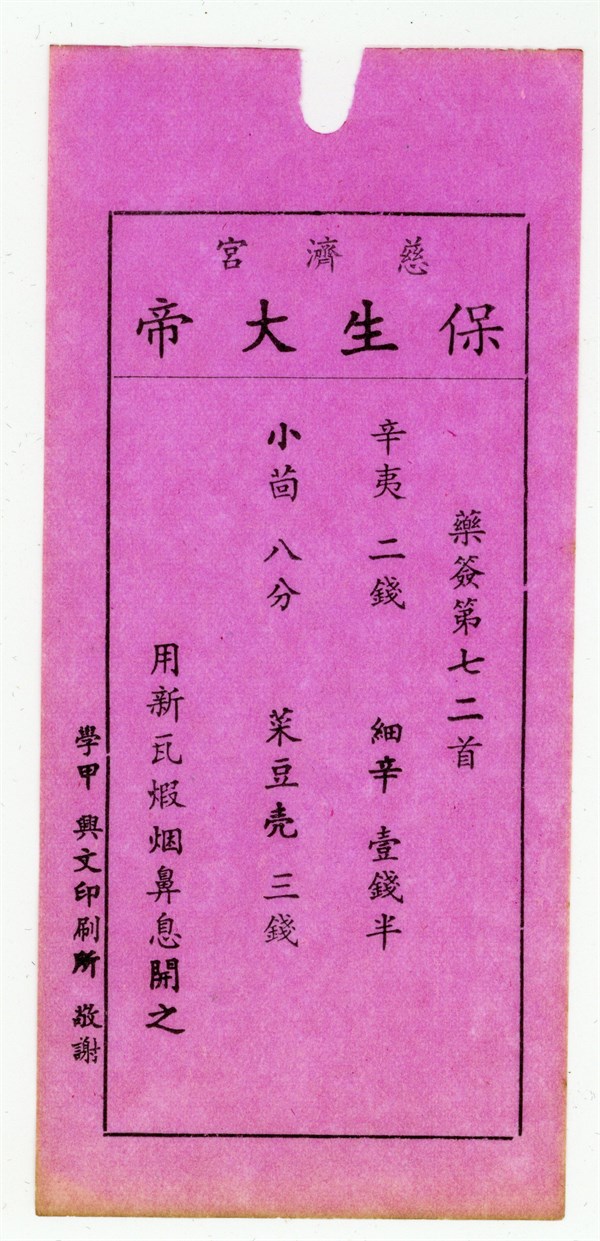 慈濟宮
保生大帝
藥簽第七二首
辛夷 二錢 細辛 壹錢半
小茴 八分 菉豆壳 三錢
用新瓦煆烟鼻息開之
學甲 興文印刷所 敬謝